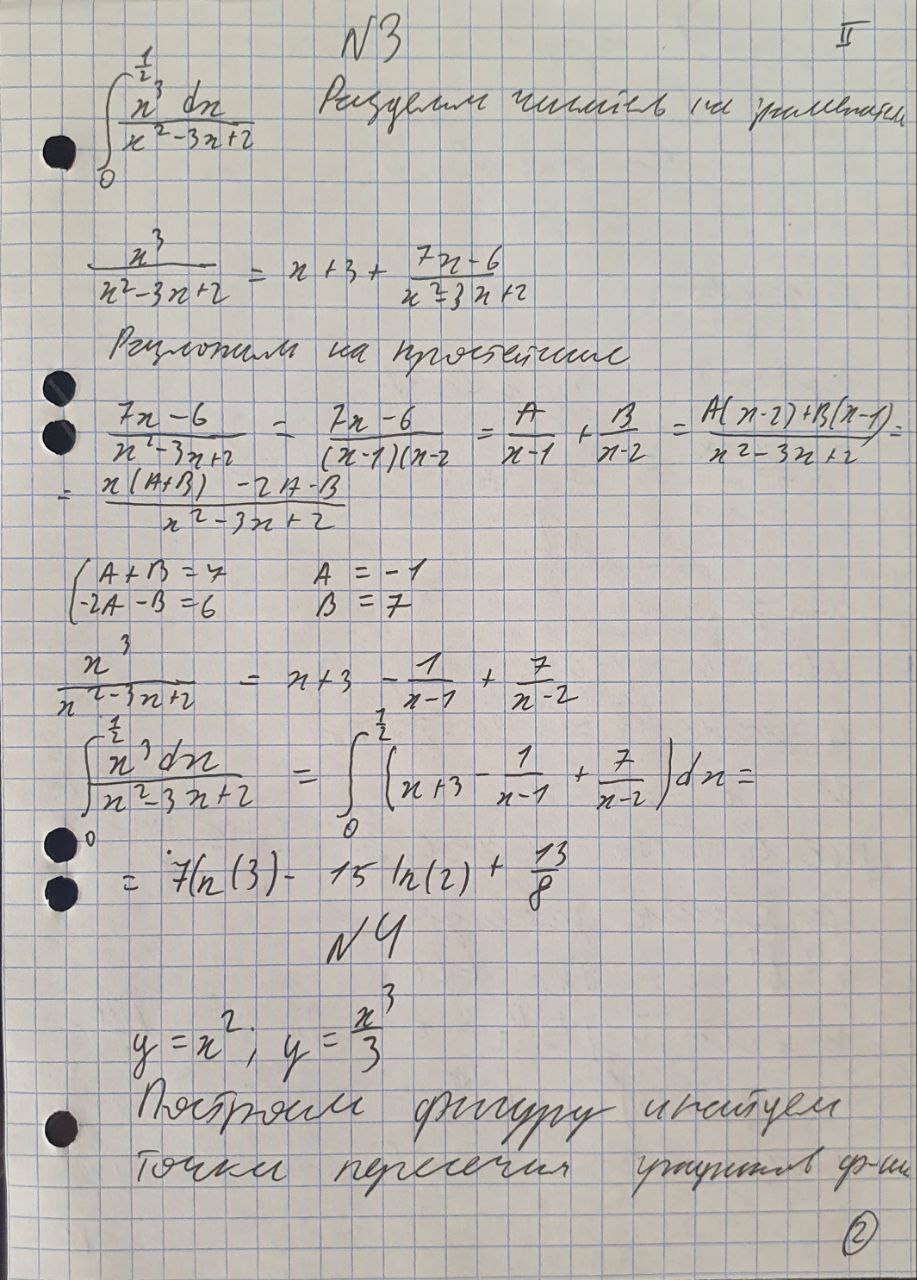 N3 II
∫₀^(1/2) x³ dx / (x² - 3x + 2) Разделим числитель на знаменател
x³ / (x² - 3x + 2) = x + 3 + (7x - 6) / (x² - 3x + 2)
Разложим на простейшие
(7x - 6) / (x² - 3x + 2) = (7x - 6) / ((x-1)(x-2 = A / (x-1) + B / (x-2) = (A(x-2) + B(x-1)) / (x² - 3x + 2) =
= (x(A+B) - 2A - B) / (x² - 3x + 2)
{ A + B = 7 A = -1
-2A - B = 6 B = 7
x³ / (x² - 3x + 2) = x + 3 - 1 / (x-1) + 7 / (x-2)
∫₀^(1/2) x³ dx / (x² - 3x + 2) = ∫₀^(1/2) (x + 3 - 1 / (x-1) + 7 / (x-2)) dx =
= 7ln(3) - 15 ln(2) + 13/8
N4
y = x²; y = x³/3
Построим фигуру и найдем
точки пересечия графиков ф-ии
2